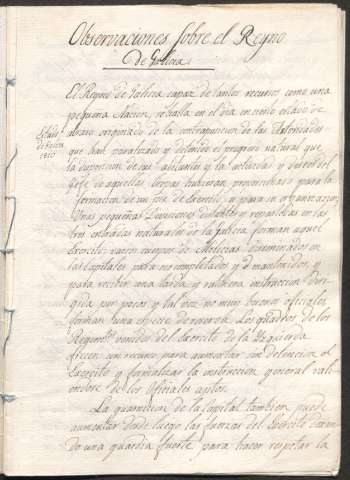 Observaciones sobre el Reyno
de Galicia
Estado
de Galicia
1810
El Reyno de Galicia capaz de tantos recursos como una
pequeña Nacion, se halla en el dia en cierto estado de
atraso originado de la contraposicion de las Autoridades
que han paralizado y detenido el progreso natural que
la disposicion de sus abitantes y la actividad y deseos del
Gefe de aquellas tropas hubieran proporcionado para la
formacion de un pie de Exercito, y para su organizacion;
Unas pequeñas Divisiones distantes y repartidas en las
tres entradas naturales de la Galicia forman aquel
Exercito; varios cuerpos de Milicias diseminados en
las Capitales para ser completados y mantenidos, y
para recibir una tarda y instruccion diri-
gida por pocos y tal vez no muy buenos oficiales,
forman una especie de reserva. Los quadros de los
Regim.tos venidos del Exercito de la Izquierda
ofrecen un recurso para aumentar sin detencion el
Exercito y formalizar la instruccion general vali-
endose de los Oficiales aptos.
La guarnicion de la Capital tambien puede
aumentar desde luego las fuerzas del Exercito
do una guardia fuerte para hacer respetar la